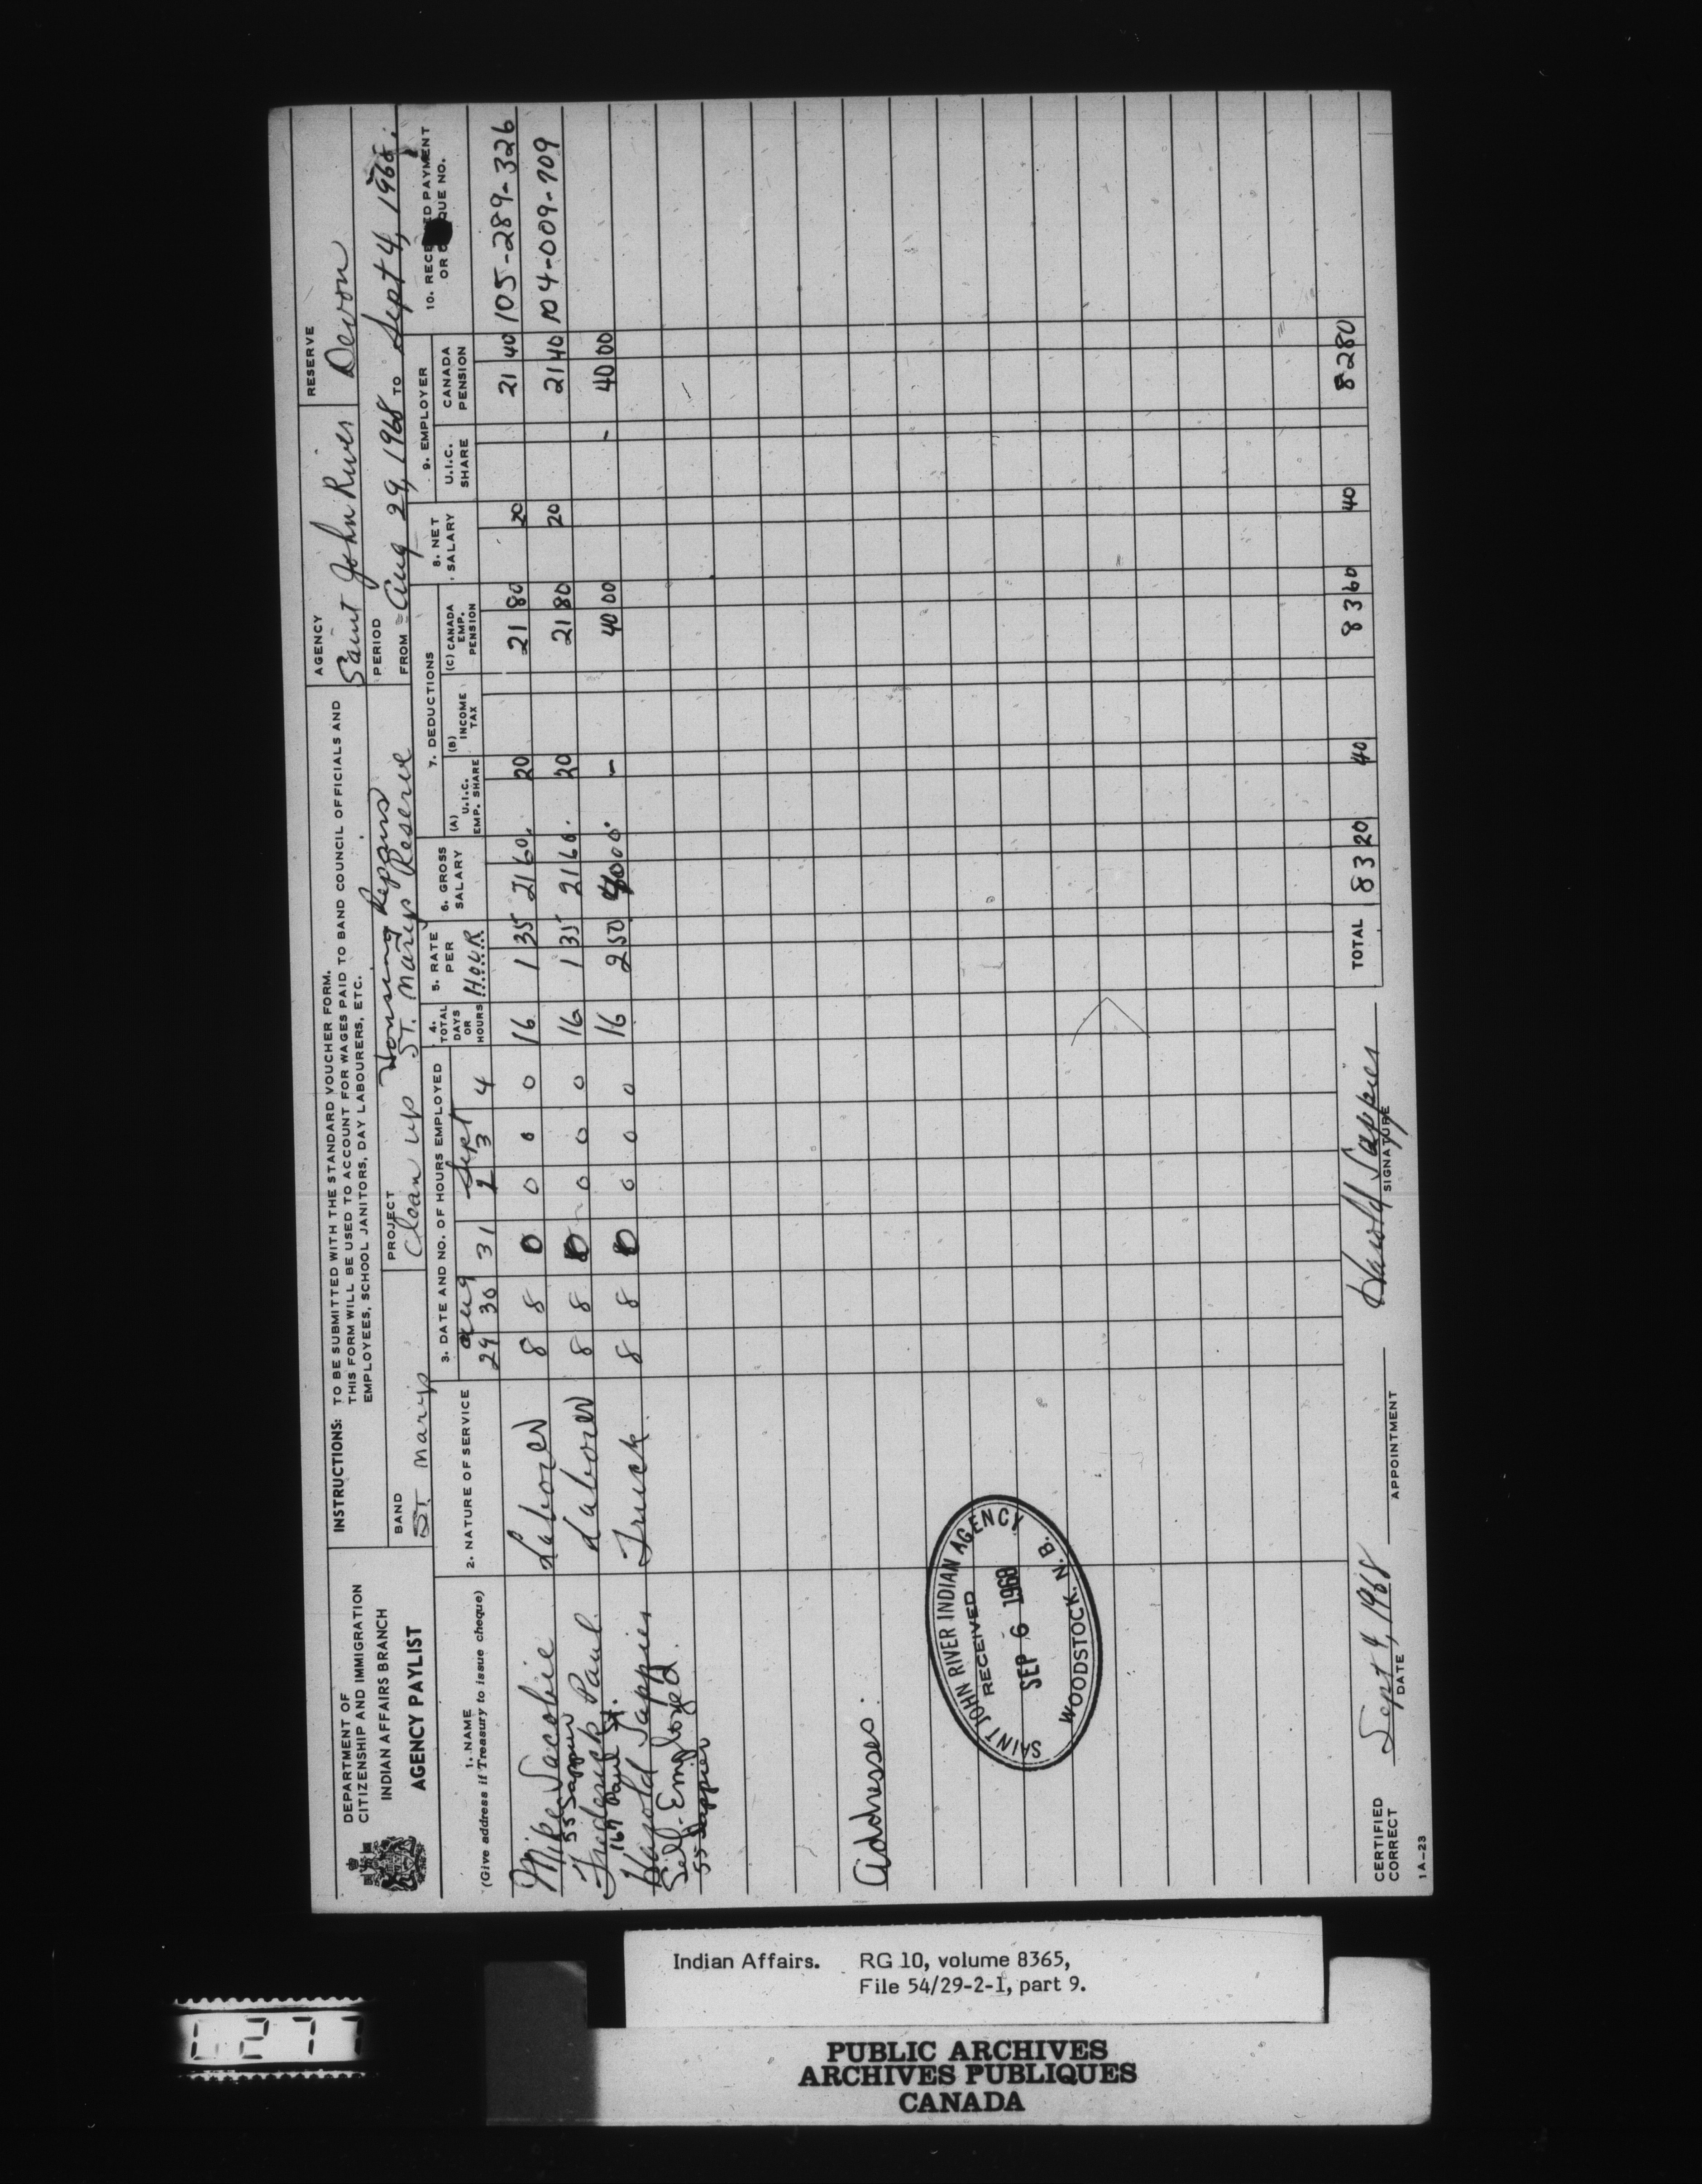 DEPARTMENT OF
CITIZENSHIP AND IMMIGRATION
INDIAN AFFAIRS BRANCH
AGENCY PAYLIST
INSTRUCTIONS: TO BE SUBMITTED WITH THE STANDARD VOUCHER FORM.
THIS FORM WILL BE USED TO ACCOUNT FOR WAGES PAID TO BAND COUNCIL OFFICIALS AND
EMPLOYEES, SCHOOL JANITORS, DAY LABOURERS, ETC.
AGENCY
Saint John River
RESERVE
Devon
BAND
ST. Marys
PROJECT
Housing Repairs
Clean up ST. Marys Reserve
PERIOD
FROM Aug 29, 1968 TO Sept 4, 1968.
1. NAME
(Give address if Treasury to issue cheque)
2. NATURE OF SERVICE
3. DATE AND NO. OF HOURS EMPLOYED
Aug Sept
29 30 31 2 3 4
4. TOTAL DAYS OR HOURS
5. RATE PER HOUR
6. GROSS SALARY
7. DEDUCTIONS
(A) U.I.C. EMP. SHARE
(B) INCOME TAX
(C) CANADA EMP. PENSION
8. NET SALARY
9. EMPLOYER
U.I.C. SHARE
CANADA PENSION
10. RECE ED PAYMENT
OR QUE NO.
Mike Sacobie Laborer 8 8 0 0 0 0 16 1 35 21 60. 20 21 80 20 21 40 105-289-326
55 Sappier
Frederick Paul Laborer 8 8 0 0 0 0 16 1 35 21 60. 20 21 80 20 21 40 104-009-709
167 Paul St.
Harold Sappier Truck 8 8 0 0 0 0 16 2 50 40 00. - 40 00 - 40 00
Self-Employed.
55 Sappier
Addresses:
SAINT JOHN RIVER INDIAN AGENCY
RECEIVED
SEP 6 1968
WOODSTOCK. N. B.
TOTAL 83 20 40 83 60 40 82 80
CERTIFIED
CORRECT
Sept 4, 1968
DATE
APPOINTMENT
Harold Sappier
SIGNATURE
1A-23
Indian Affairs. RG 10, volume 8365,
File 54/29-2-1, part 9.
PUBLIC ARCHIVES
ARCHIVES PUBLIQUES
CANADA